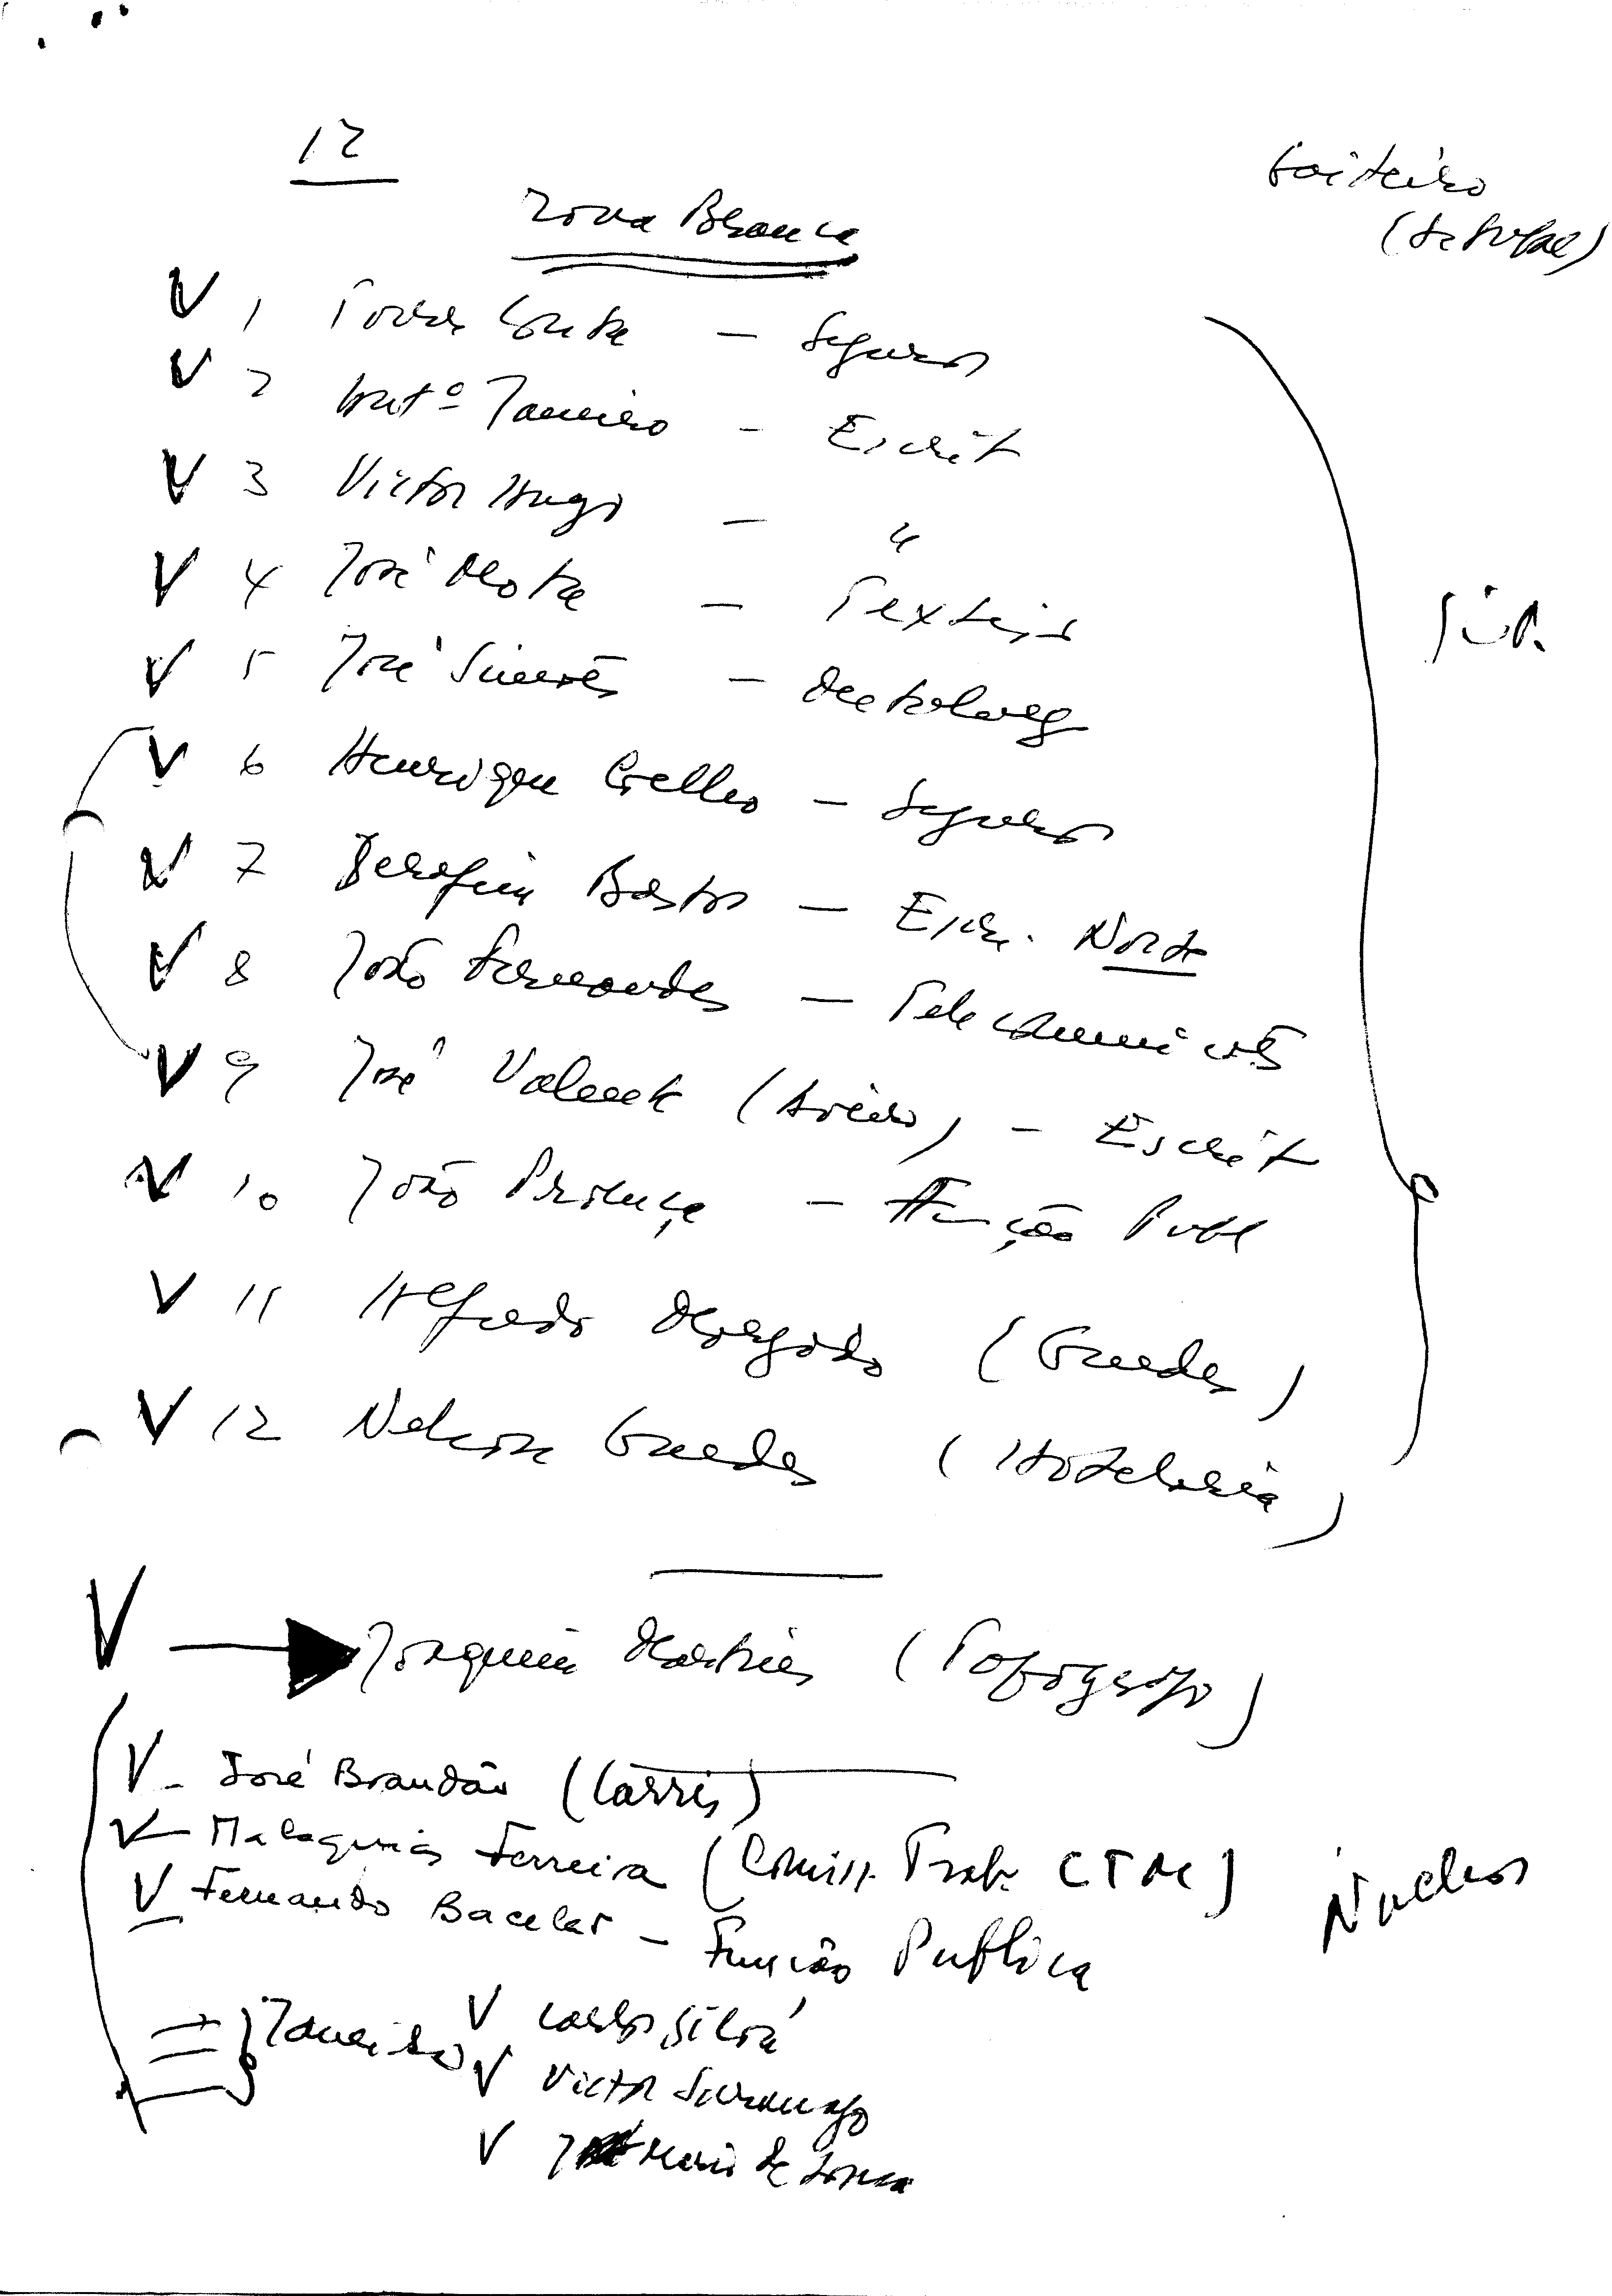 12
Gaiteiro
(Setubal)
Zona Branca
V 1 Torres Couto — Seguros
V 2 Antº Janeiro — Escrit
V 3 Victor Hugo — "
V 4 José Mota — Texteis
V 5 José Simões — Metalurg
V 6 Henrique Coelho — Seguros
V 7 Serafim Bastos — Escr. Norte
V 8 João Fernandes — Telecomunicações
V 9 José Valente (Aveiro) — Escrit
V 10 João Proença — Função Publ
V 11 Alfredo Morgado (Guedes)
V 12 Nelson Guedes (Hotelaria)
V → Joaquim Martins (Topografo)
V - José Brandão (Carris)
V - Malaquias Ferreira (Comiss. Trab. CTM)
Nucleos
V Fernando Bacelar - Função Publica
Janeiro V Carlos Silva
V Victor
V Mario de Sousa